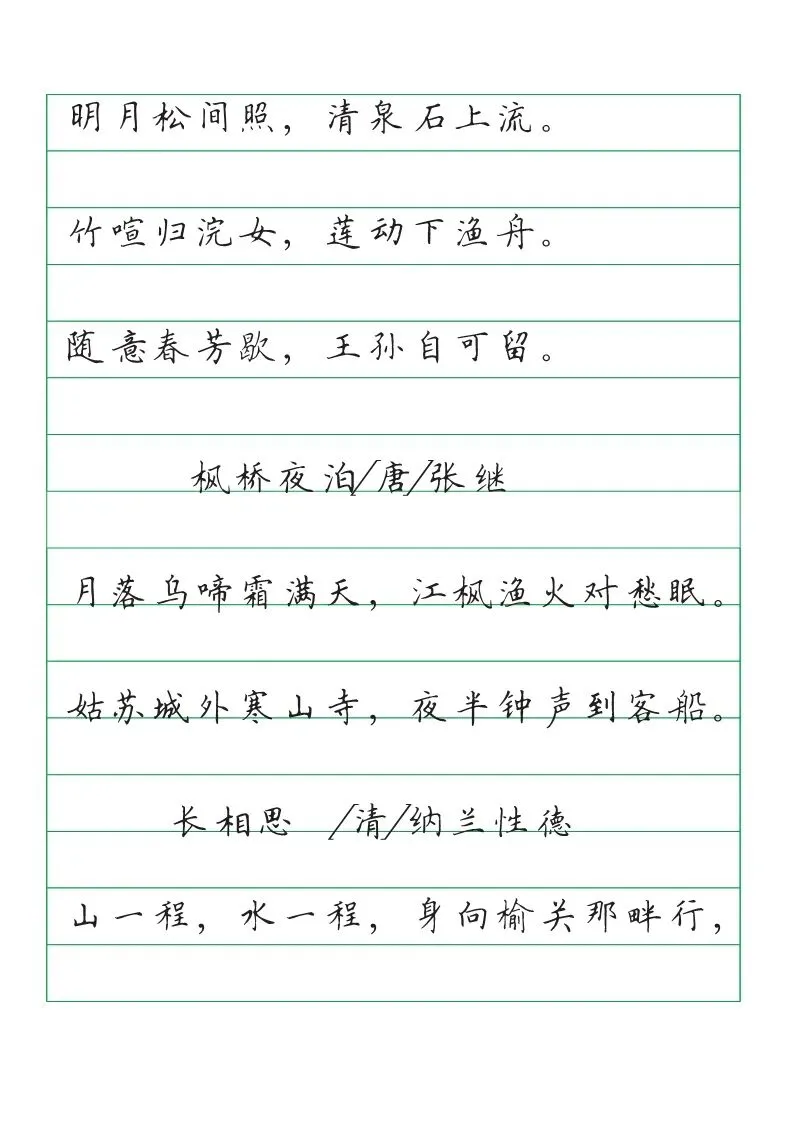 明月松间照，清泉石上流。
竹喧归浣女，莲动下渔舟。
随意春芳歇，王孙自可留。
枫桥夜泊[唐]张继
月落乌啼霜满天，江枫渔火对愁眠。
姑苏城外寒山寺，夜半钟声到客船。
长相思 [清]纳兰性德
山一程，水一程，身向榆关那畔行，